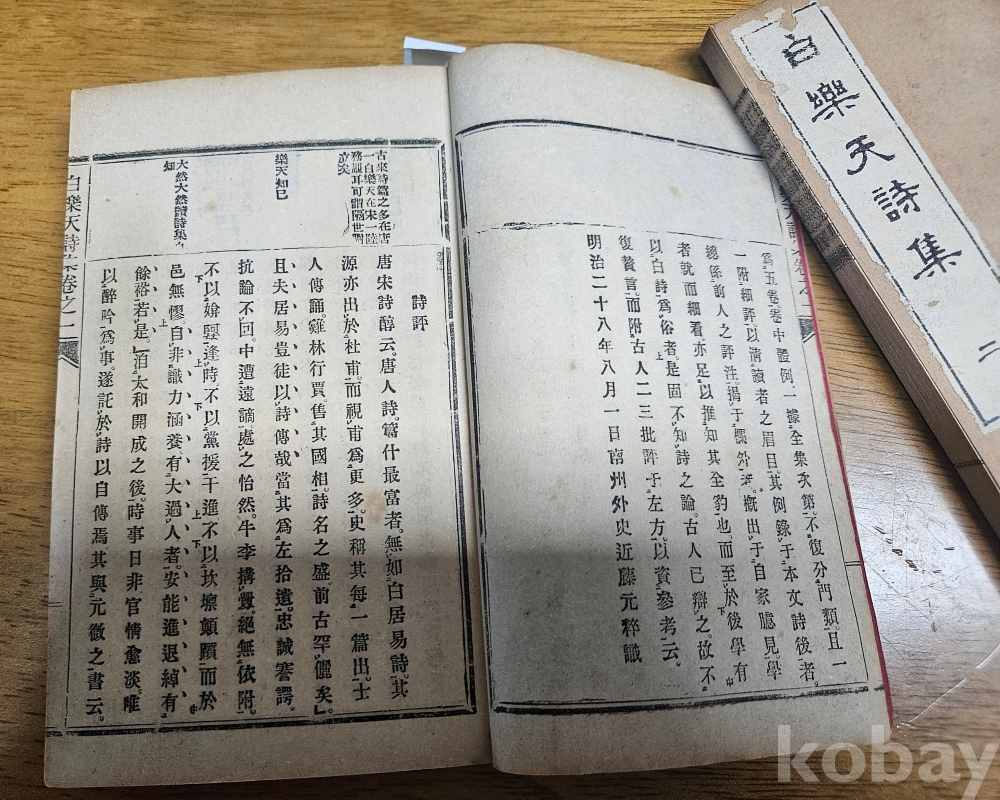 白樂天詩集
二
爲五卷卷中體例一據全集次第不復分門類且一
一附細評以淸讀者之眉目其例錄于本文詩後者
總係前人之評注揭于欄外者槪出于自家臆見學
者就而細看亦足以推知其全豹也而至於後學有
以白詩爲俗者是固不知詩之論古人已辯之故不
復贊言而附古人二三批評于左方以資參考云
明治二十八年八月一日南州外史近藤元粹識
詩評
唐宋詩醇云唐人詩篇什最富者無如白居易詩其
源亦出於杜甫而視甫爲更多史稱其每一篇出士
人傳誦雞林行賈售其國相詩名之盛前古罕儷矣
且夫居易豈徒以詩傳哉當其爲左拾遺忠誠謇諤
抗論不回中遭遠謫處之怡然牛李搆釁絕無依附
不以婞嬰逢時不以黨援干進不以坎壈顛躓而於
邑無憀自非識力涵養有大過人者安能進退綽有
餘裕若是洎太和開成之後時事日非官情愈淡唯
以醉吟爲事遂託於詩以自傳焉其與元微之書云
古來詩篇之多在唐
一白樂天在宋一陸
務觀耳可謂隔世對
立矣
樂天知己
大然大然讀詩集
知
白樂天詩集卷之一
kobay